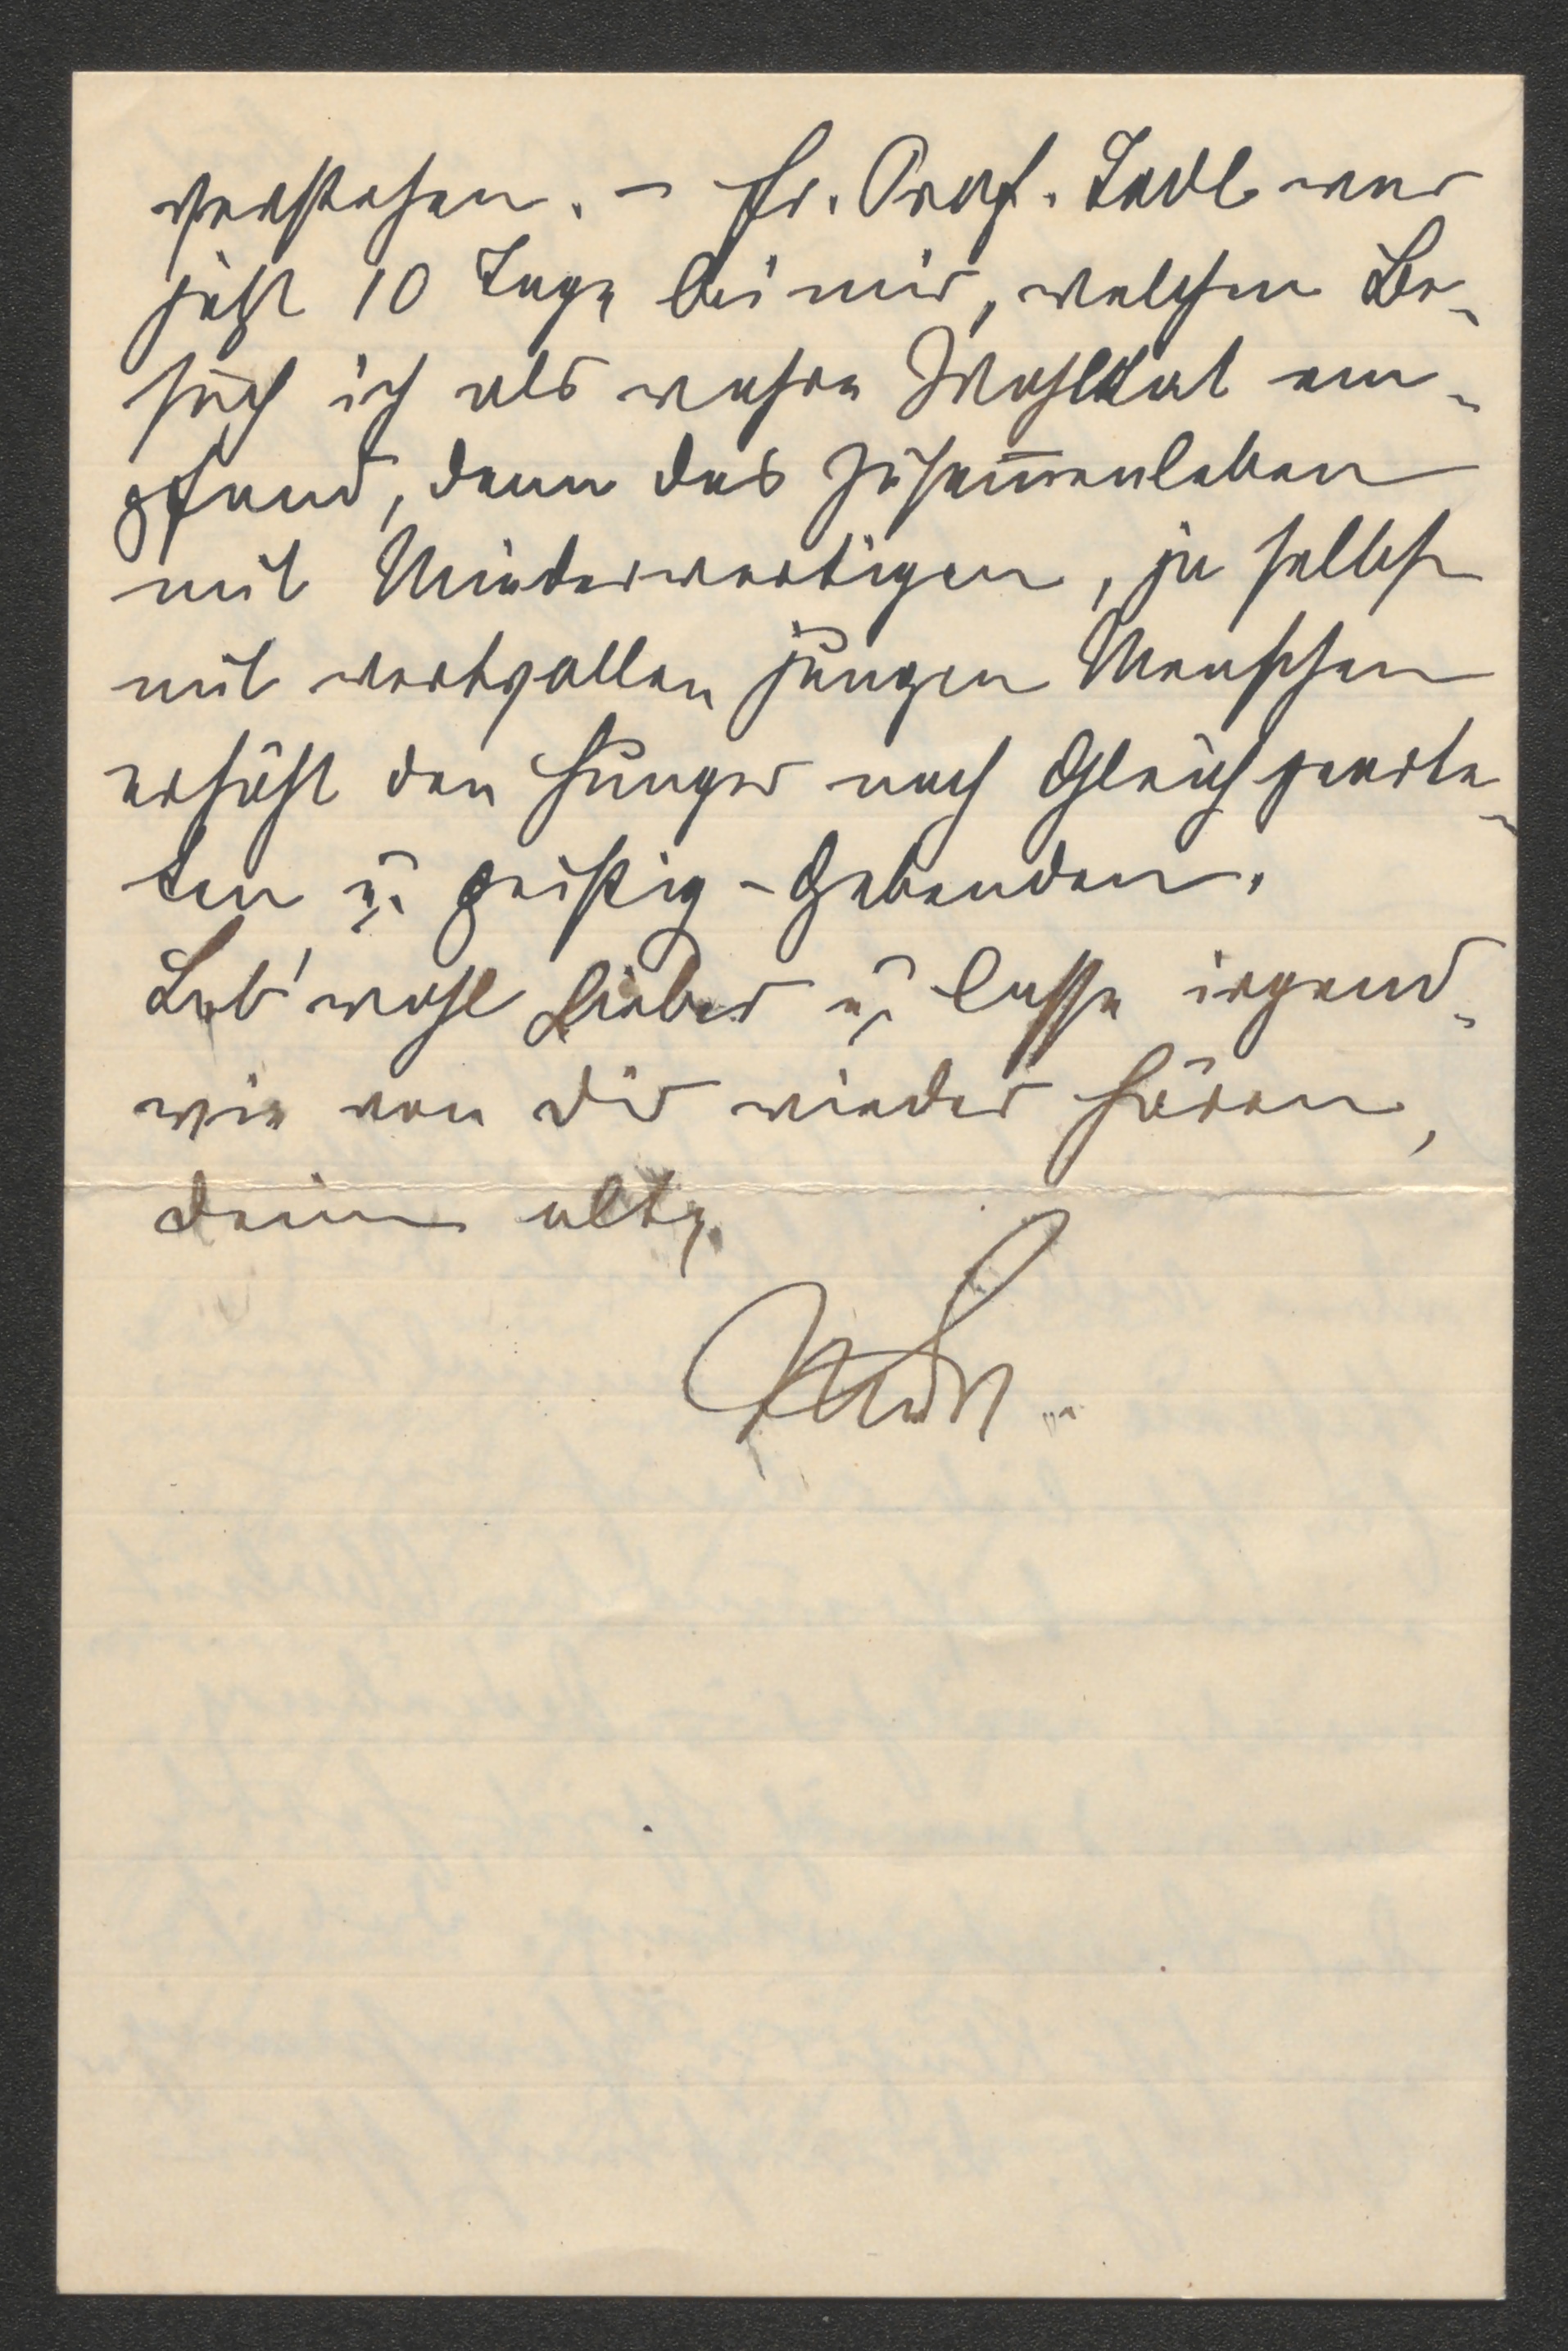 verstehen. – Fr. Prof. Jodl war
jetzt 10 Tage bei mir, welchen Be-
such ich als wahre Wohltat em-
pfand, denn das Zusam̅enleben
mit Minderwertigen, ja selbst
mit wertvollen jungen Menschen
erhöht den Hunger nach Gleichgearte-
ten u. geistig-Gebenden.
Leb' wohl Lieber u. lasse irgend-
wie von dir wieder hören,
deine alte.